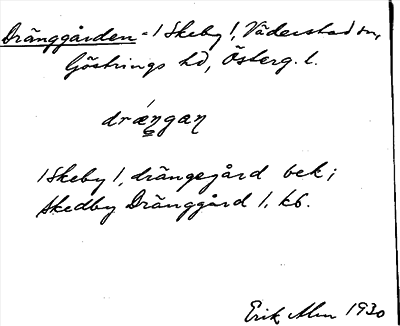 Dränggården = 1 Skeby 1, Väderstad sn,
Göstrings hd, Österg. l.
drǽŋgaŋ
1 Skeby 1, drängegård bek;
Skedby Dränggård 1, kb.
Erik Alm 1930